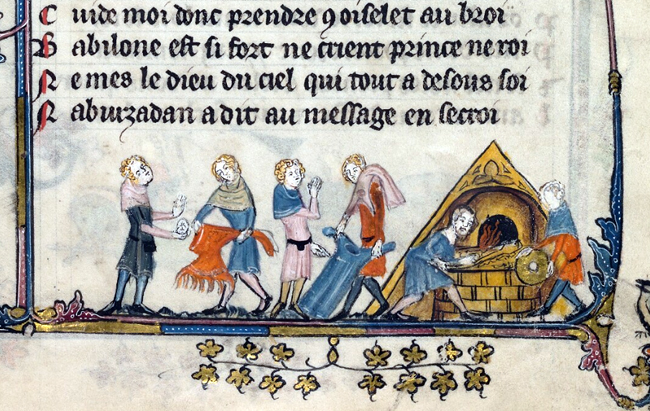 Cuide moi donc prendre 9 oiselet au broi
Babilone est si fort ne crient prince ne roi
Ne mes le dieu du ciel qui tout a desous soi
Nabuzadan a dit au message en secroi